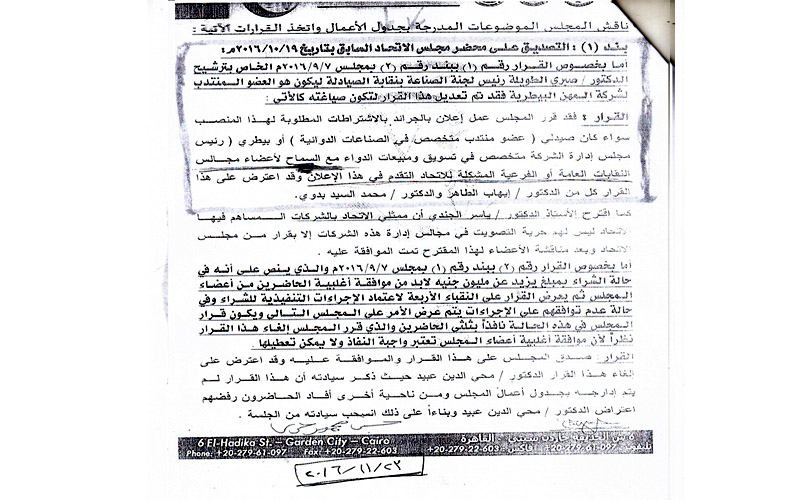 ناقش المجلس الموضوعات المدرجة بجدول الأعمال واتخذ القرارات الآتية :
بند (١) : التصديق على محضر مجلس الاتحاد السابق بتاريخ ٢٠١٦/١٠/١٩م:
أما بخصوص القرار رقم (١) ببند رقم (٢) بمجلس ٢٠١٦/٩/٧م الخاص بترشيح
الدكتور / صبري الطويلة رئيس لجنة الصناعة بنقابة الصيادلة ليكون هو العضو المنتدب
لشركة المهن البيطرية فقد تم تعديل هذا القرار لتكون صياغته كالأتي :
القرار : فقد قرر المجلس عمل إعلان بالجرائد بالاشتراطات المطلوبة لهذا المنصب
سواء كان صيدلي ( عضو منتدب متخصص في الصناعات الدوائية ) أو بيطري ( رئيس
مجلس إدارة الشركة متخصص في تسويق ومبيعات الدواء مع السماح لأعضاء مجالس
النقابات العامة أو الفرعية المشكلة للاتحاد التقدم في هذا الإعلان وقد اعترض على هذا
القرار كل من الدكتور / إيهاب الطاهر والدكتور / محمد السيد بدوي.
كما اقترح الأستاذ الدكتور / ياسر الجندي أن ممثلي الاتحاد بالشركات المساهم فيها
الاتحاد ليس لهم حرية التصويت في مجالس إدارة هذه الشركات إلا بقرار من مجلس
الاتحاد وبعد مناقشة الأعضاء لهذا المقترح تمت الموافقة عليه .
أما بخصوص القرار رقم (٢) ببند رقم (١) بمجلس ٢٠١٦/٩/٧م والذي ينص على أنه في
حالة الشراء بمبلغ يزيد عن مليون جنيه لابد من موافقة أغلبية الحاضرين من أعضاء
المجلس ثم يعرض القرار على النقباء الأربعة لاعتماد الإجراءات التنفيذية للشراء وفي
حالة عدم توافقهم على الإجراءات يتم عرض الأمر على المجلس التالي ويكون قرار
المجلس في هذه الحالة نافذاً بثلثي الحاضرين والذي قرر المجلس إلغاء هذا القرار
نظراً لأن موافقة أغلبية أعضاء المجلس تعتبر واجبة النفاذ ولا يمكن تعطيلها .
القرار: صدق المجلس على هذا القرار والموافقة عليه وقد اعترض على
إلغاء هذا القرار الدكتور / محي الدين عبيد حيث ذكر سيادته أن هذا القرار لم
يتم إدراجه بجدول أعمال المجلس ومن ناحية أخرى أفاد الحاضرون رفضهم
اعتراض الدكتور / محي الدين عبيد وبناءاً على ذلك انسحب سيادته من الجلسة .
6 El-Hadika St. – Garden City – Cairo
Phone: +20-279-61-097 Fax: +20-279-22-603
٢٠١٦/١١/٢٣